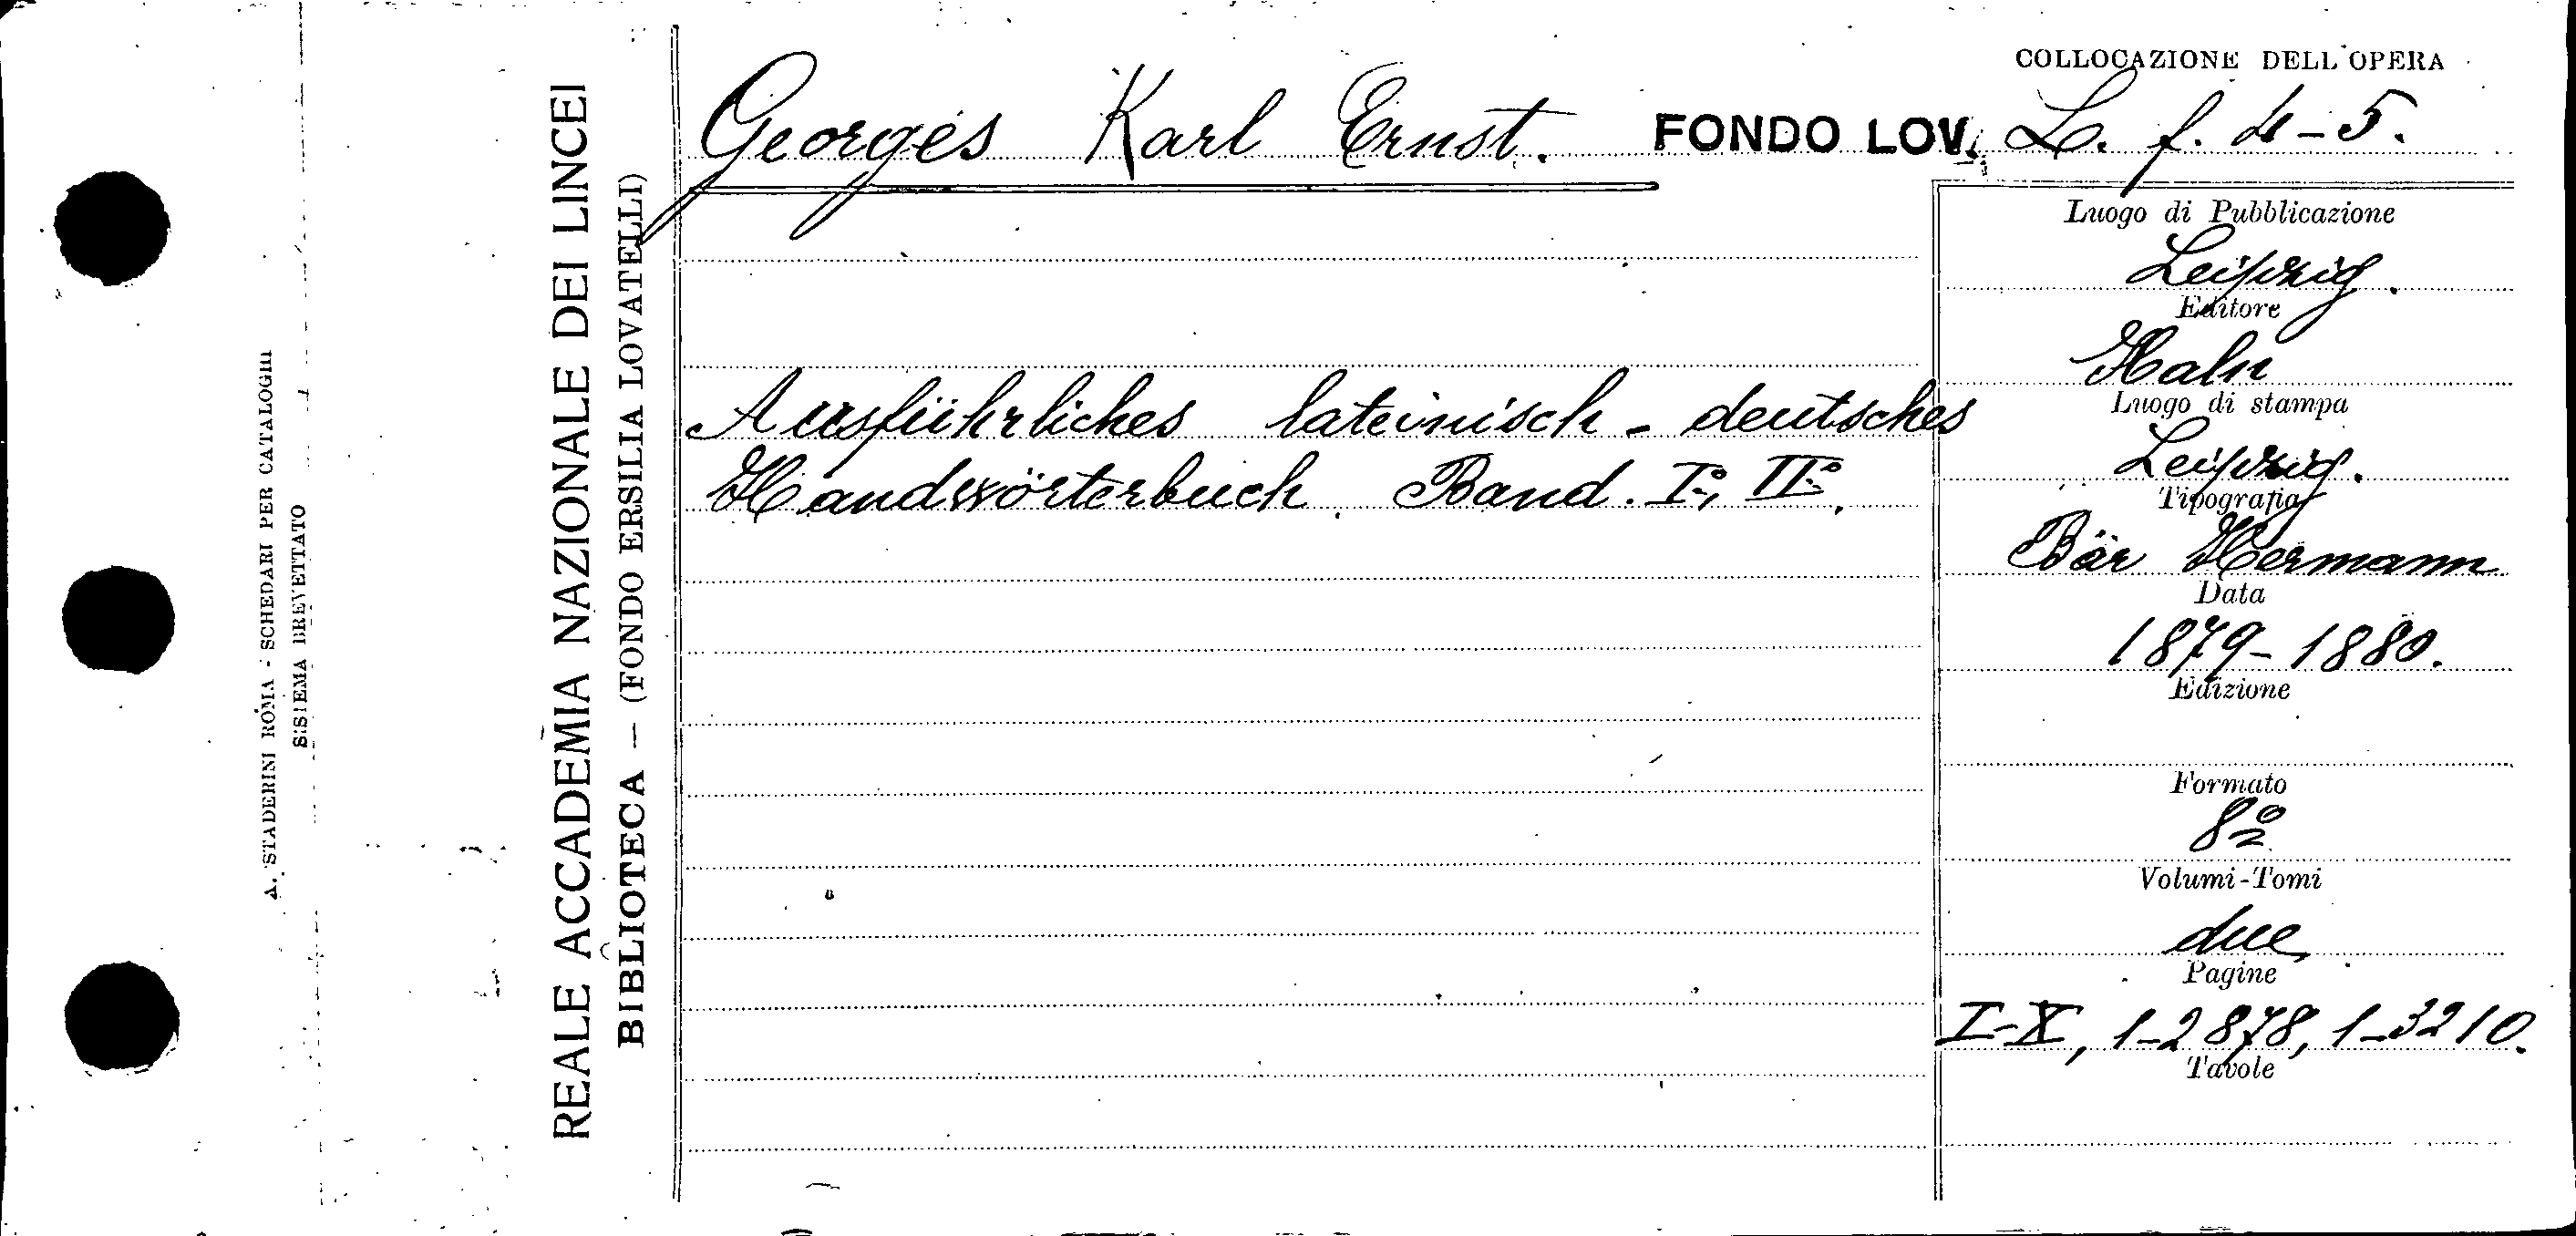 A. STADERINI ROMA - SCHEDARI PER CATALOGHI
SISTEMA BREVETTATO
REALE ACCADEMIA NAZIONALE DEI LINCEI
BIBLIOTECA — (FONDO ERSILIA LOVATELLI)
Georges Karl Ernst.
Ausführliches lateinisch - deutsches
Handwörterbuch. Band. I:, II:.
COLLOCAZIONE DELL'OPERA
FONDO LOV. L. f. 4-5.
Luogo di Pubblicazione
Leipzig.
Editore
Hahn
Luogo di stampa
Leipzig.
Tipografia
Bär Hermann
Data
1879-1880.
Edizione
Formato
8º
Volumi-Tomi
due
Pagine
I-X, 1-2878, 1-3210.
Tavole